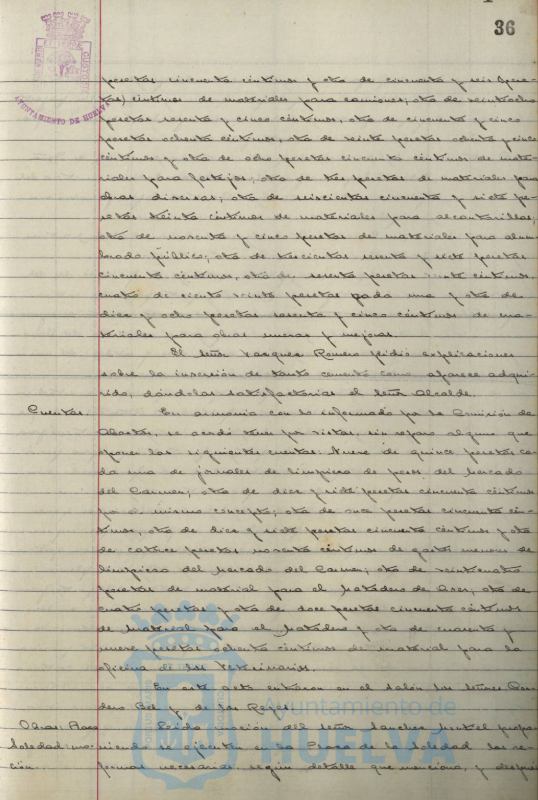 36
AYUNTAMIENTO DE HUELVA
pesetas cincuenta céntimos y otra de cincuenta y seis (pese-
tas) céntimos de materiales para camiones; otra de veintiocho
pesetas sesenta y cinco céntimos, otra de cincuenta y cinco
pesetas ochenta céntimos, otra de veinte pesetas ochenta y cinco
céntimos y otra de ocho pesetas cincuenta céntimos de mate-
riales para festejos; otra de tres pesetas de materiales para
obras diversas; otra de seiscientas cincuenta y siete pe-
setas treinta céntimos de materiales para alcantarillas;
otra de noventa y cinco pesetas de materiales para alum-
brado público; otra de trescientas y siete pesetas
cincuenta céntimos, otra de sesenta pesetas céntimos,
cuatro de ciento veinte pesetas cada una y otra de
diez y ocho pesetas sesenta y cinco céntimos de ma-
teriales para obras nuevas y mejoras.
El señor Vazquez Romero pidió explicaciones
sobre la inversión de tanto cemento como aparece adqui-
rido, dándolas satisfactorias el señor Alcalde.
Cuentas. En armonía con lo informado por la Comisión de
Abastos, se acordó tener por vistas, sin reparo alguno que
oponer las siguientes cuentas: Nueve de quince pesetas ca-
da una de jornales de limpieza de pesos del Mercado
del Carmen; otra de diez y siete pesetas cincuenta céntimos
por el mismo concepto; otra de pesetas cincuenta cén-
timos, otra de diez y siete pesetas cincuenta céntimos y otra
de catorce pesetas noventa céntimos de gastos menores de
limpieza del Mercado del Carmen; otra de veinticuatro
pesetas de material para el Matadero de Aves; otra de
cuatro pesetas y otra de doce pesetas cincuenta céntimos
de material para el Matadero y otra de cuarenta y
nueve pesetas ochenta céntimos de material para la
oficina de los Veterinarios.
En este acto entraron en el salón los señores
Bel y de los Reyes.
Obras: Plaza Leída moción del señor Sanchez propo-
Soledad: mo- niendo se ejecuten en la Plaza de la Soledad las re-
ción. formas necesarias, según detalle que menciona, y después
Ayuntamiento de
HUELVA